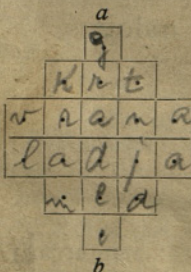 a
g
k r t
v r a n a
l a d j a
m e d
e
b